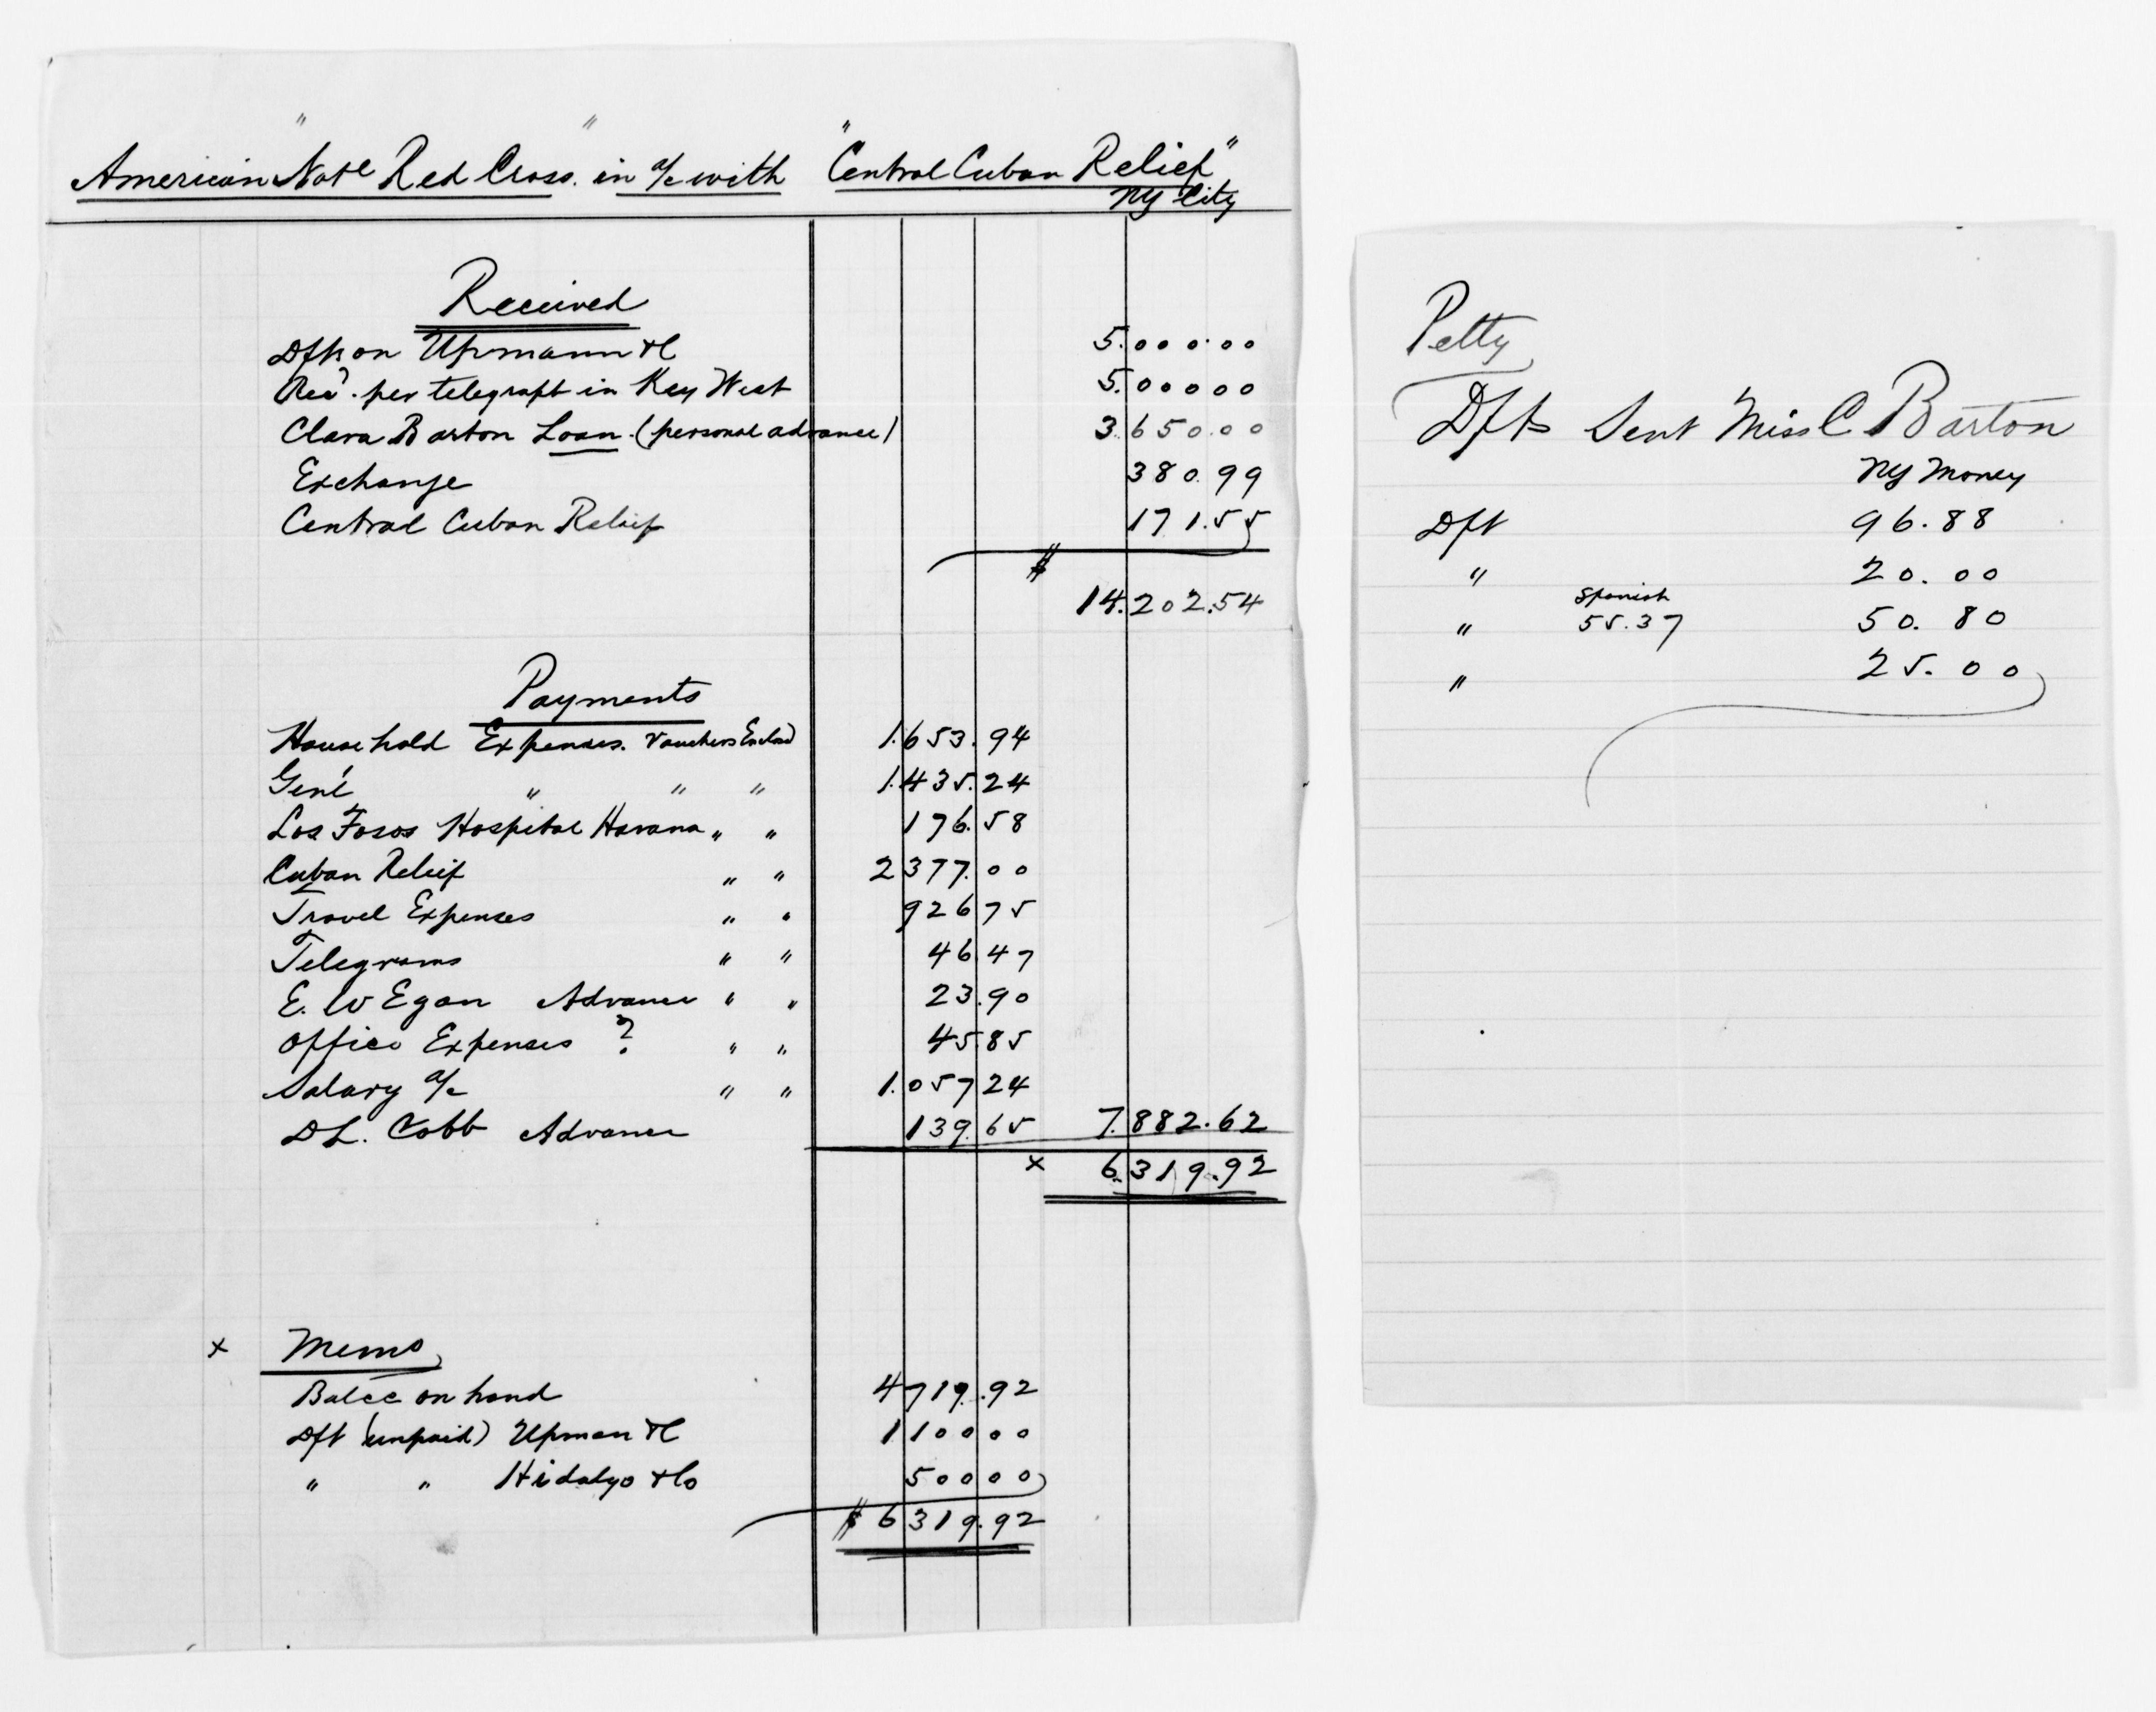 American "Natl Red Cross." in a/c with "Central Cuban Relief"
NY City
Received
Dfts on Upmann & C 5.000.00
Recd. per telegraph in Key West 5.000.00
Clara Barton Loan. (personal advance) 3.650.00
Exchange 380.99
Central Cuban Relief 171.55
$ 14.202.54
Payments
Household Expenses. Vouchers Enclosd 1.653.94
Genl " " " 1.435.24
Los Fosos Hospital Havana " " 176.58
Cuban Relief " " 2377.00
Travel Expenses " " 926 75
Telegrams " " 46 47
E. W Egan Advance " " 23.90
Office Expenses ? " " 45 85
Salary a/c " " 1.057 24
D L. Cobb Advance 139.65 7.882.62
x 6.319.92
x Memo
Balce on hand 4719.92
Dft (unpaid) Upman & C 1100 00
" " Hidalgo & Co 500 00
$ 6319.92
Petty
Dfts Sent Miss C Barton
NY Money
Dft 96.88
" 20.00
Spanish
" 55.37 50.80
" 25.00